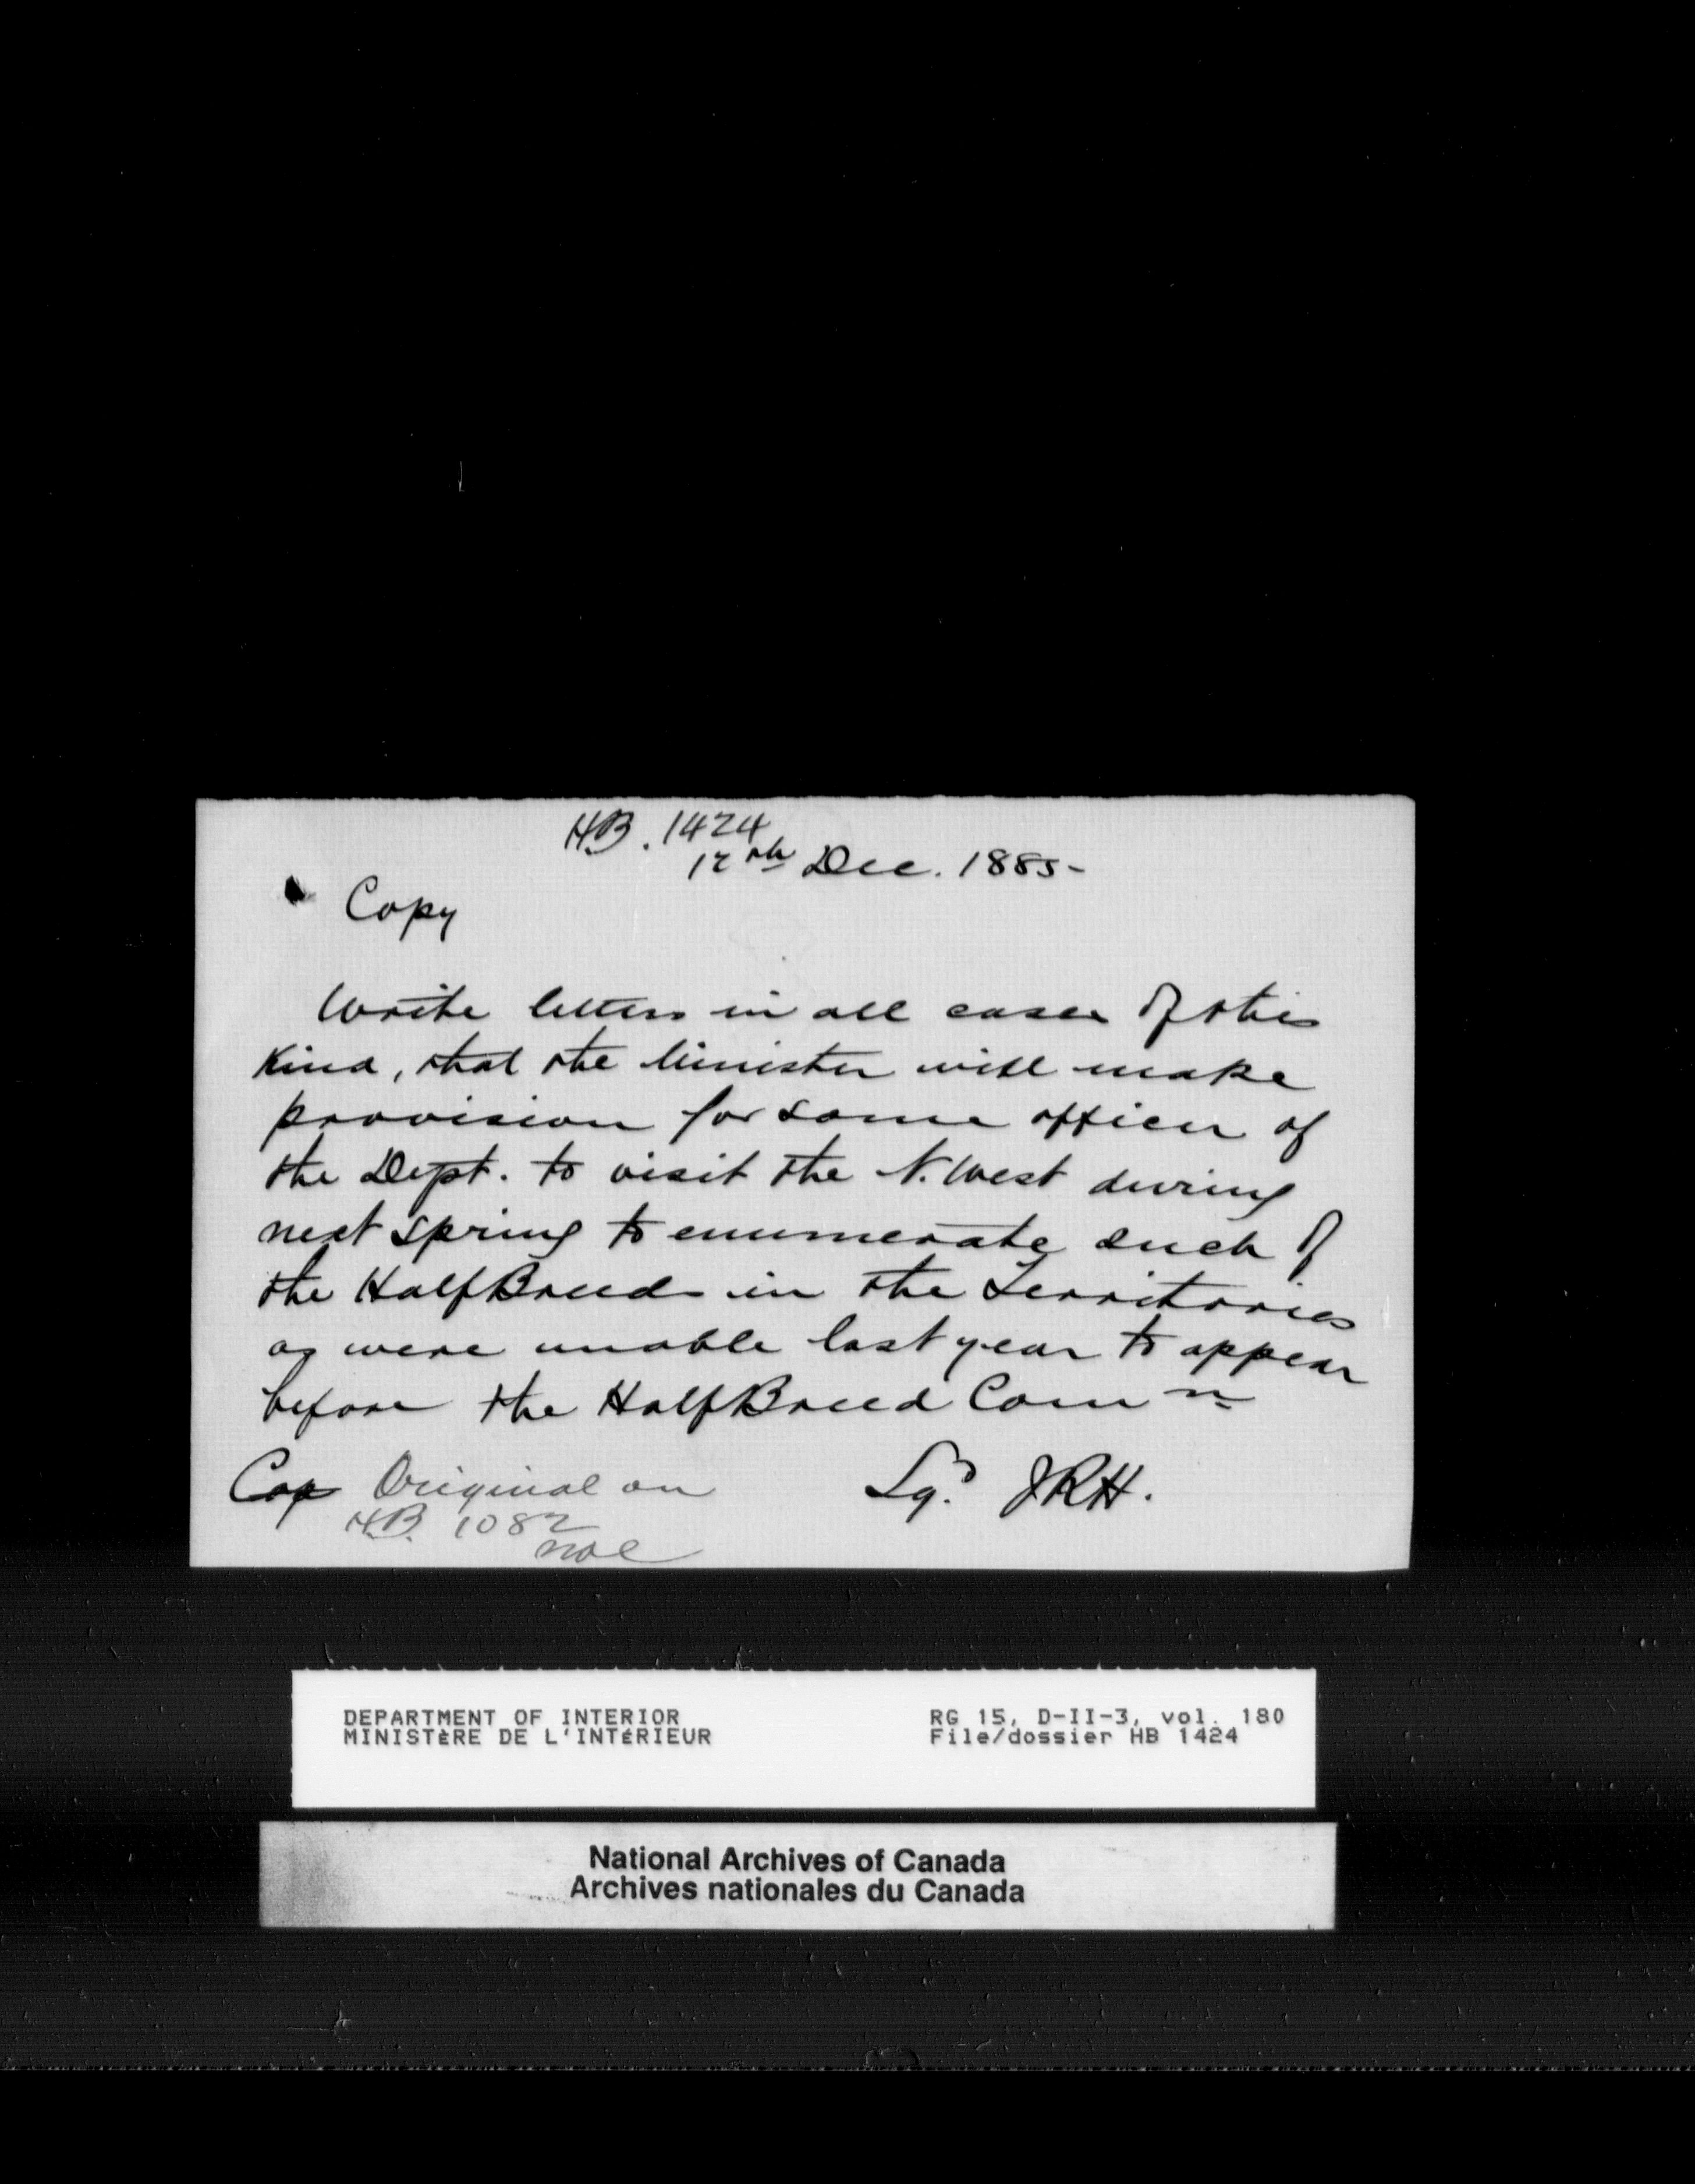 HB. 1424
12th Dec. 1885-
Copy
Write letters in all cases of this
kind, that the Minister will make
provision for some officer of
the Dept. to visit the N. West during
next spring to enumerate such of
the HalfBreeds in the Territories
as were unable last year to appear
before the HalfBreed Comn
Cop Original on
H.B. 1082
Sgd JRH.
DEPARTMENT OF INTERIOR
MINISTÈRE DE L'INTÉRIEUR
RG 15, D-II-3, vol. 180
File/dossier HB 1424
National Archives of Canada
Archives nationales du Canada